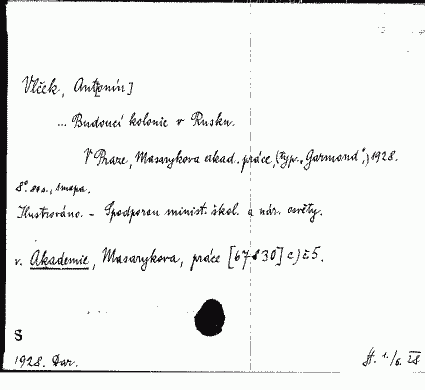 Vlček, Ant[onín]
... Budoucí kolonie v Rusku.
V Praze, Masarykova akad. práce, (typ. „Garmond“,) 1928.
8° 80 s., 1 mapa.
Ilustrováno. - Podporou minist. škol. a nár. osvěty.
v. Akademie, Masarykova, práce [67830] c) č 5.
S
1928. Dar.
H. 1./6. 28